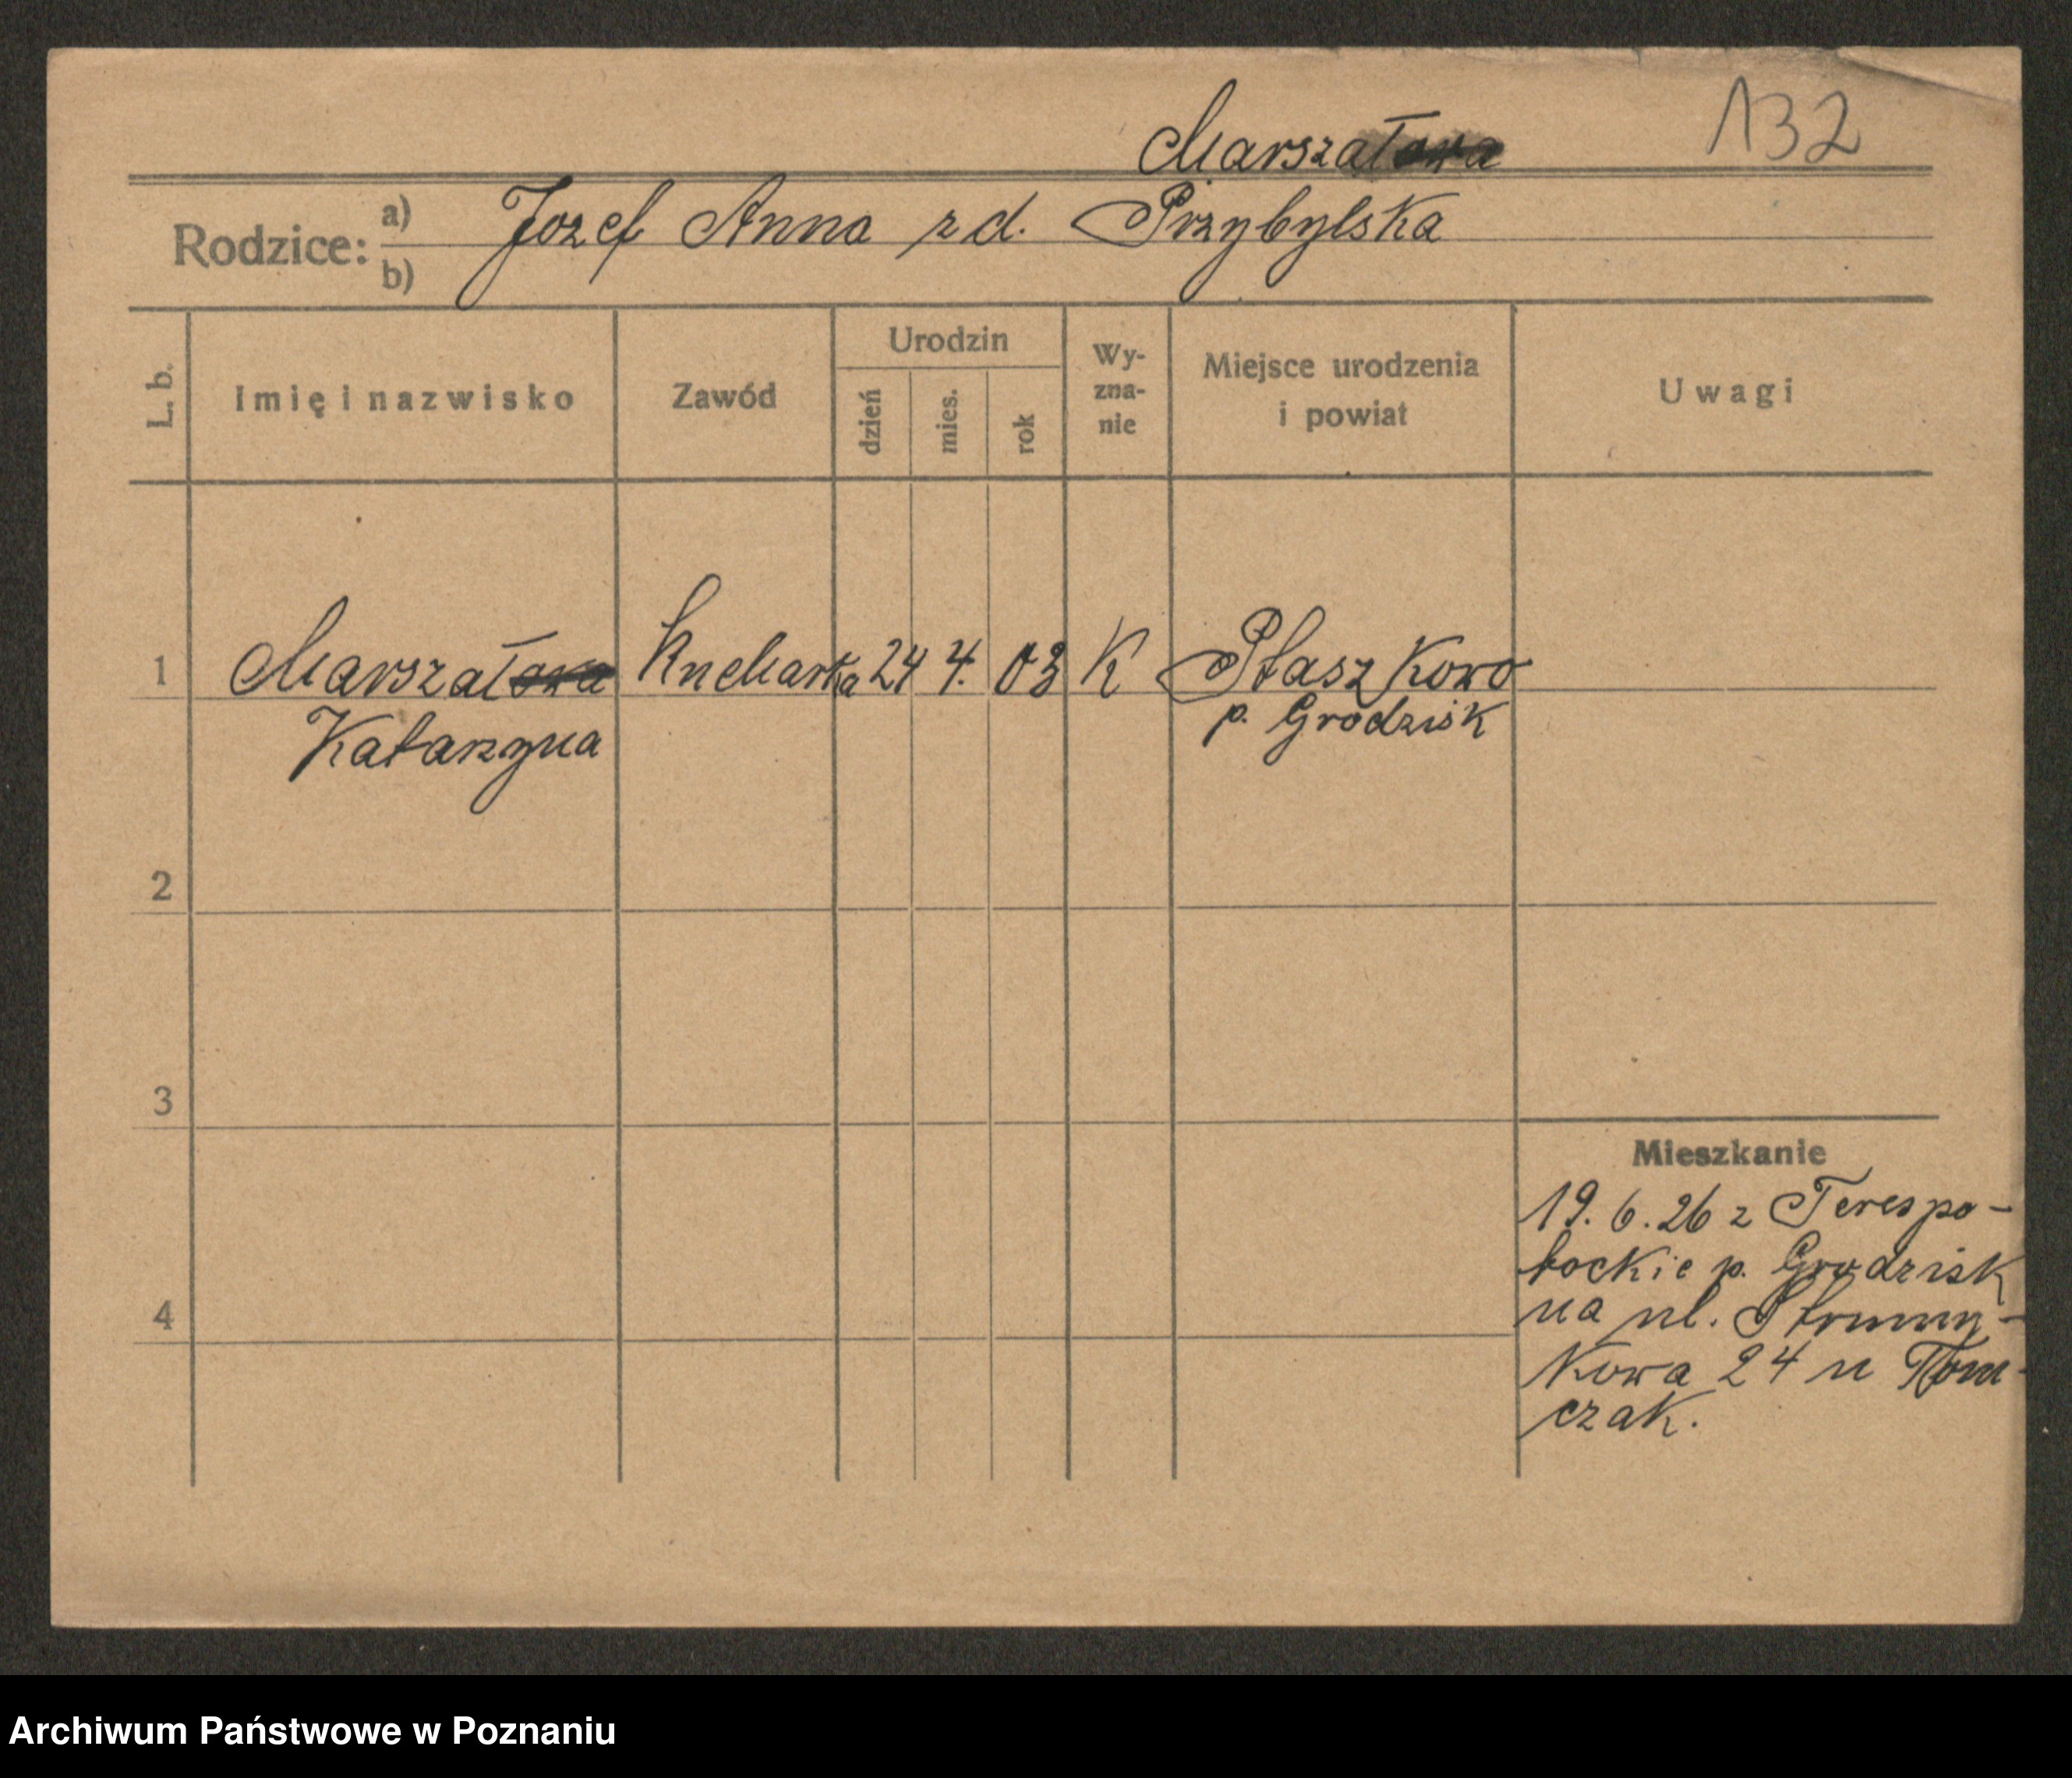 132
Marszał
Rodzice: a) Jozef Anna zd. Przybylska
b)
L. b. Imię i nazwisko Zawód Urodzin dzień mies. rok Wy-zna-nie Miejsce urodzenia i powiat Uwagi
1 Marszał Kucharka 24 4. 03 K Ptaszkowo
Katarzyna p. Grodzisk
2
3
Mieszkanie
19. 6. 26 z Terespo-
tockie p. Grodzisk
4 na ul. Strumy-
kowa 24 u Tom-
czak.
Archiwum Państwowe w Poznaniu